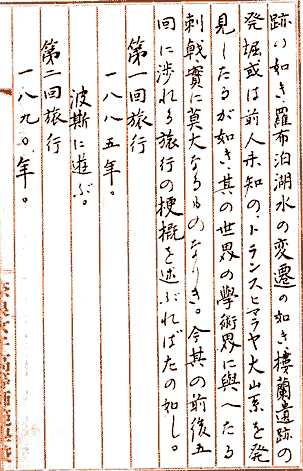 跡の如き羅布泊湖水の変遷の如き、樓蘭遺跡の
発掘或は前人未知の、トランスヒマラヤ大山系を発
見したるが如き、其の世界の學術界に與へたる
刺戟實に莫大なるものなりき。今其の前後五
回に渉れる旅行の梗概を述ぶればたの如し。
第一回旅行
一八八五年。
波斯に遊ぶ。
第二回旅行
一八九〇年。